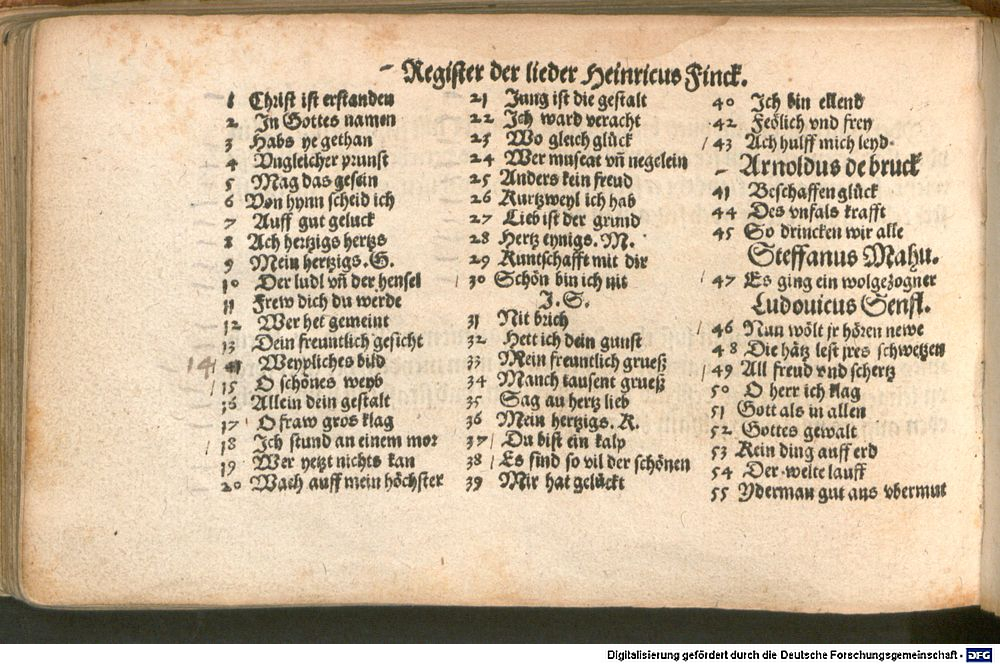 Register der lieder Heinricus Finck.
1 Christ ist erstanden
2 In Gottes namen
3 Habs ye gethan
4 Vngleicher prunst
5 Mag das gesein
6 Von hynn scheid ich
7 Auff gut geluck
8 Ach hertzigs hertzs
9 Mein hertzigs. G.
10 Der ludl vñ der hensel
11 Frew dich du werde
12 Wer het gemeint
13 Dein freuntlich gesicht
141 41 Weypliches bild
15 O schönes weyb
16 Allein dein gestalt
17 O fraw gros klag
18 Ich stund an einem mor
19 Wer yetzt nichts kan
20 Wach auff mein höchster
21 Jung ist die gestalt
22 Ich ward veracht
23 Wo gleich glück
24 Wer muscat vñ negelein
25 Anders kein freud
26 Kurtzweyl ich hab
27 Lieb ist der grund
28 Hertz eynigs. M.
29 Kuntschafft mit dir
30 Schön bin ich nit
I. S.
31 Nit brich
32 Hett ich dein gunst
33 Mein freuntlich grueß
34 Manch tausent grueß
35 Sag an hertz lieb
36 Mein hertzigs. K.
37 Du bist ein kalp
38 Es sind so vil der schönen
39 Mir hat gelückt
40 Ich bin ellend
42 Feölich vnd frey
43 Ach hulff mich leyd.
Arnoldus de bruck
41 Beschaffen glück
44 Des vnfals krafft
45 So drincken wir alle
Steffanus Mahu.
47 Es ging ein wolgezogner
Ludouicus Senfl.
46 Nun wölt jr hören newe
48 Die hätz lest jres schwetzen
49 All freud vnd schertz
50 O herr ich klag
51 Gott als in allen
52 Gottes gewalt
53 Kein ding auff erd
54 Der welte lauff
55 Yderman gut aus vbermut
Digitalisierung gefördert durch die Deutsche Forschungsgemeinschaft - DFG